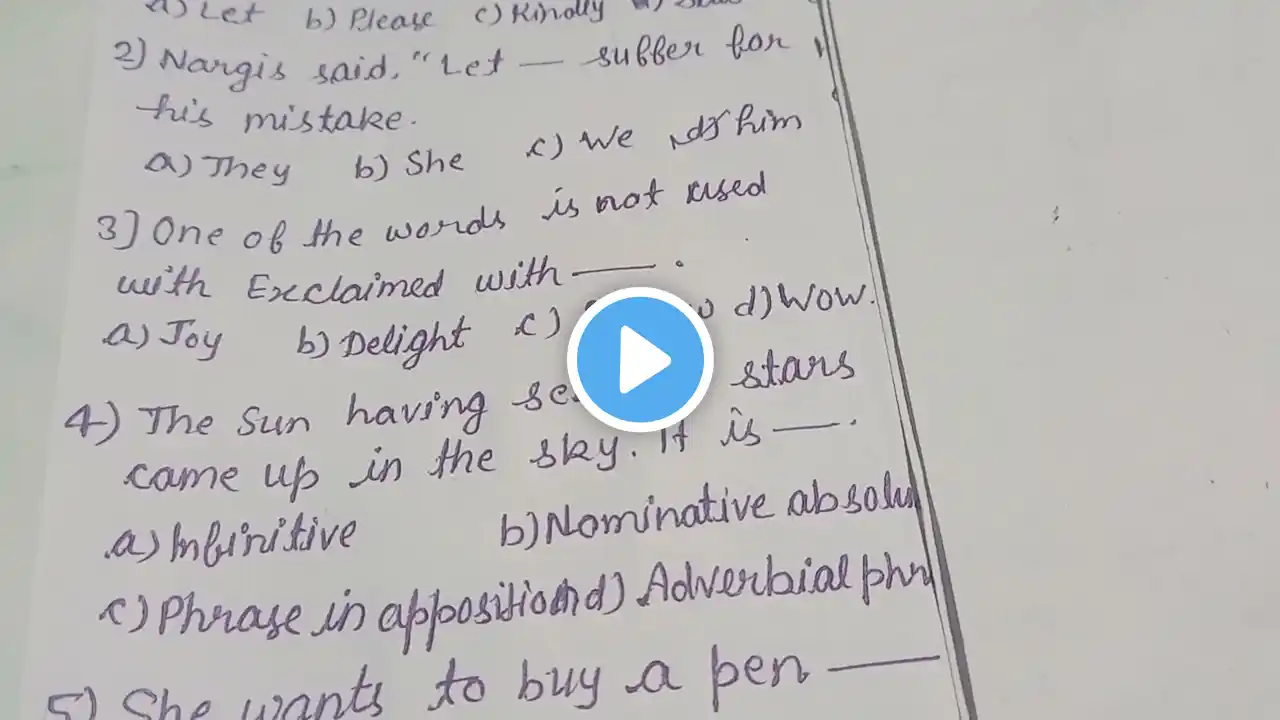 a) Let b) Please c) Kindly
2) Nargis said, "Let — suffer for
his mistake.
a) They b) She c) We d) him
3] One of the words is not used
with Exclaimed with —.
a) Joy b) Delight c) d) Wow.
4) The Sun having stars
came up in the sky. It is —.
a) Infinitive b) Nominative
c) Phrase in apposition d) Adverbial
5) She wants to buy a pen —